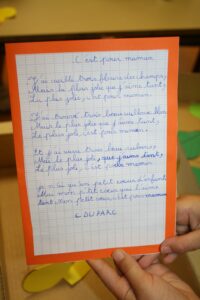 C'est pour maman
J'ai cueilli trois fleurs des champs,
Mais la fleur que j'aime tant,
La plus jolie, c'est pour maman.
J'ai trouvé trois beaux
Mais le plus joli que j'aime tant,
Le plus joli, c'est pour maman.
Et j'ai trois beaux rubans,
Mais le plus joli, que j'aime tant,
Le plus joli, c'est pour maman.
Je n'ai qu'un petit cœur d'enfant
Mais mon petit cœur que j'aime
tant, mon petit cœur, c'est pour maman
C DUFARG